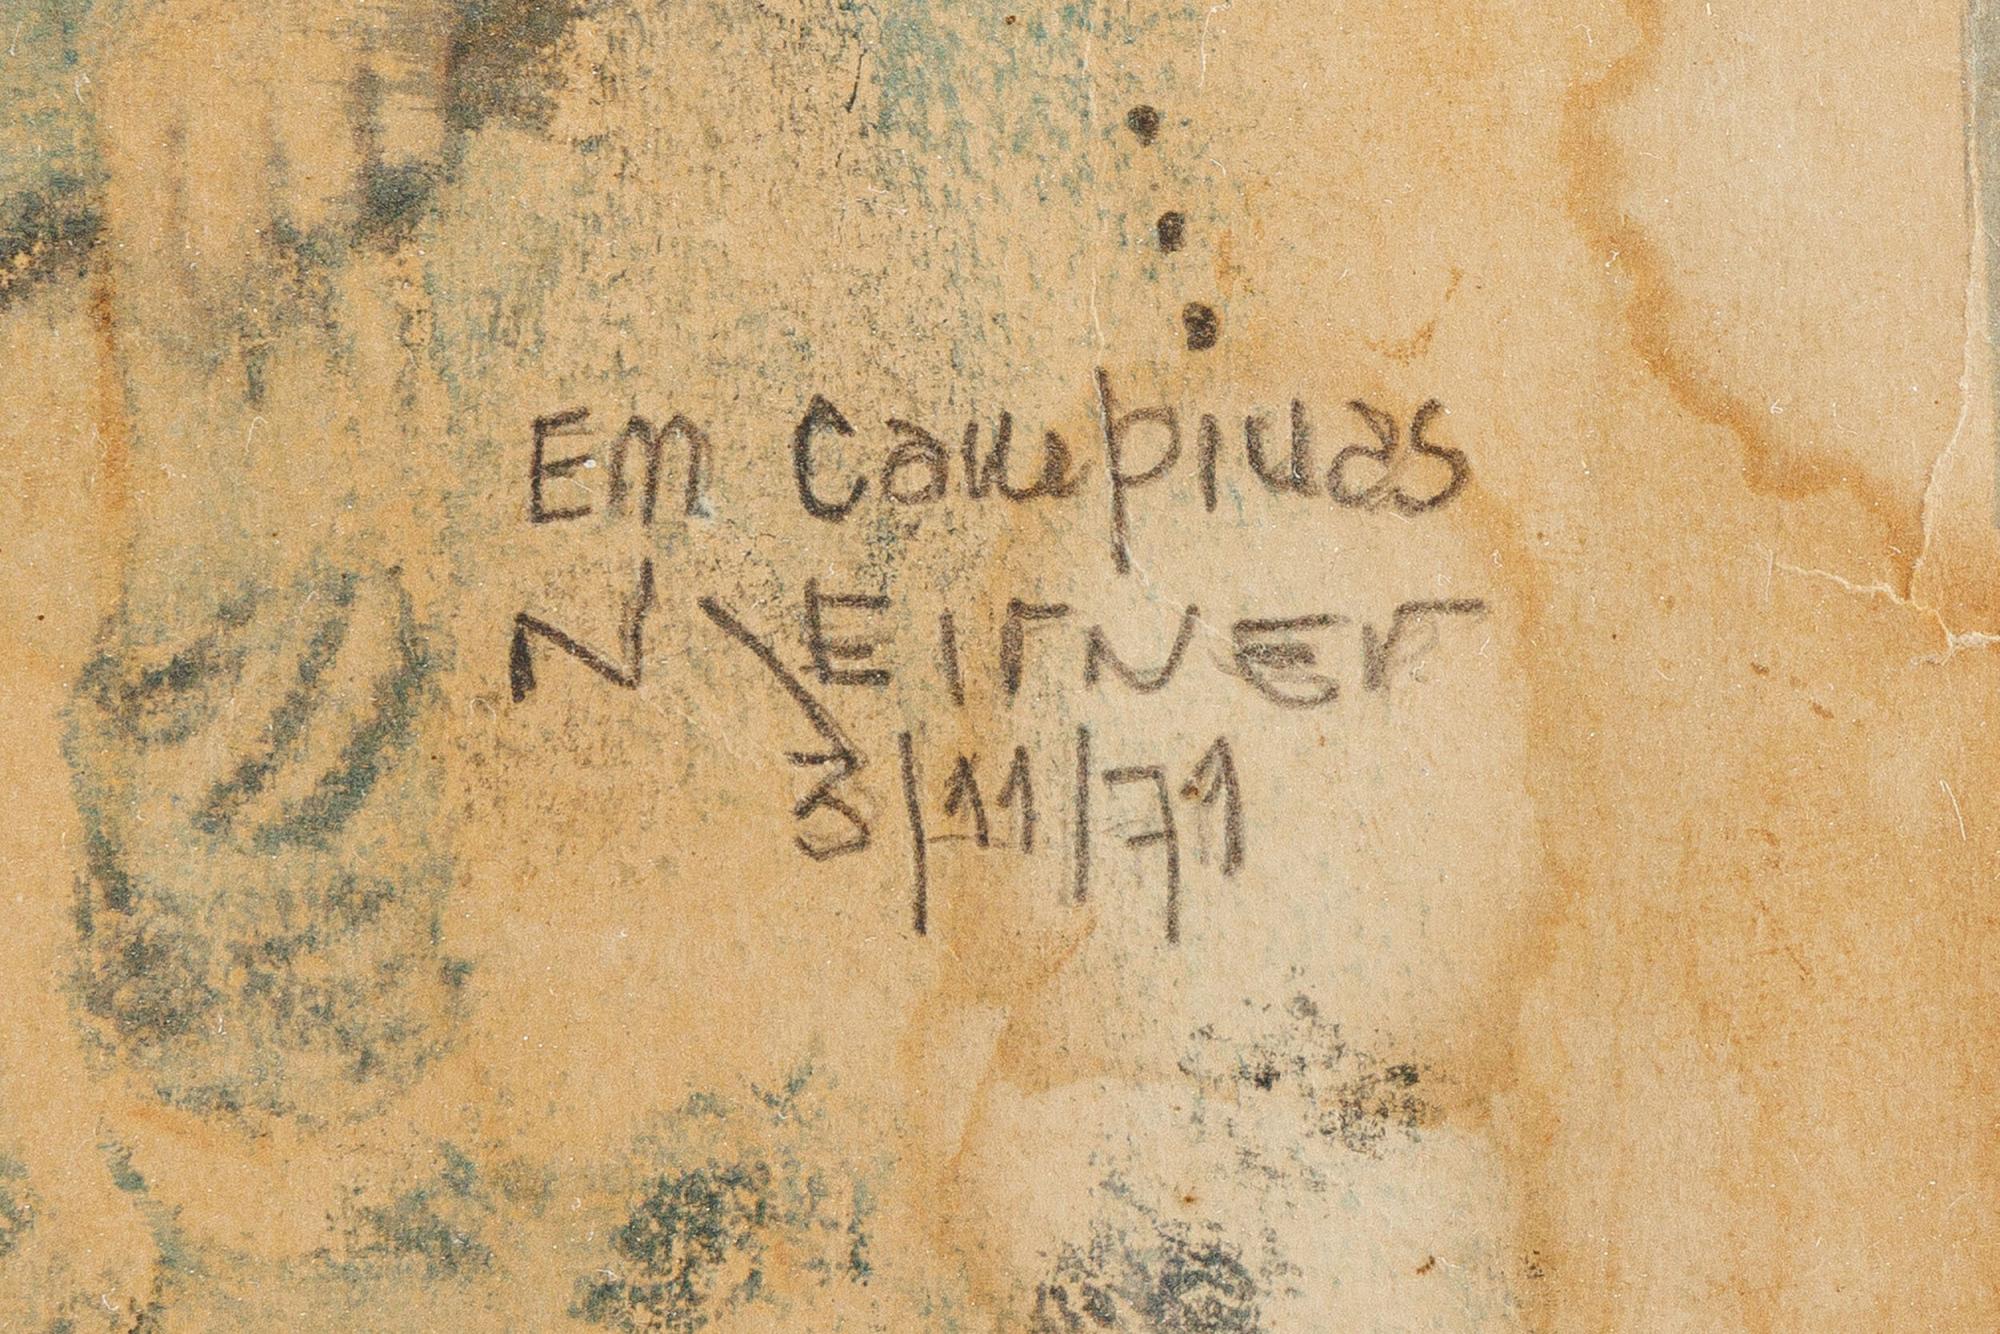 Em Campinas
N\EIrNEr
3/11/71